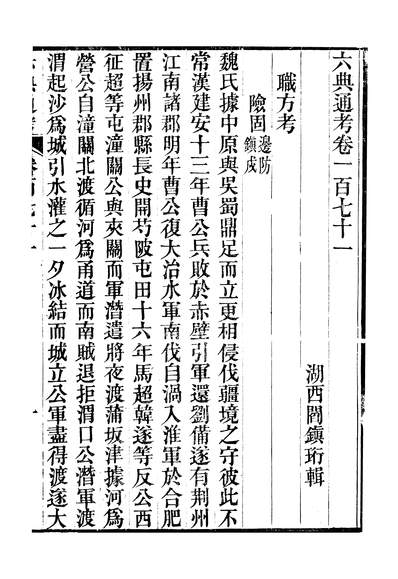 六典通考卷一百七十一
湖西閻鎮珩輯
職方考
險固邊防鎮戍
魏氏據中原與吳蜀鼎足而立更相侵伐疆境之守彼此不
常漢建安十三年曹公兵敗於赤壁引軍還劉備遂有荆州
江南諸郡明年曹公復大治水軍南伐自渦入淮軍於合肥
置揚州郡縣長史開芍陂屯田十六年馬超韓遂等反公西
征超等屯潼關公與夾關而軍潛遣將夜渡蒲坂津據河爲
營公自潼關北渡循河爲甬道而南賊退拒渭口公潛軍渡
渭起沙爲城引水灌之一夕冰結而城立公軍盡得渡遂大
一